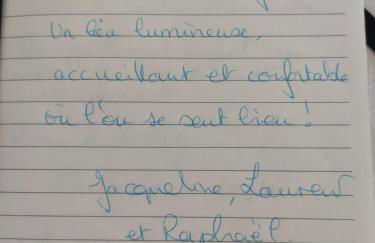 Un lieu lumineuse,
accueillant et confortable
où l'on se sent bien !
Jacqueline, Laurent
et Raphaël